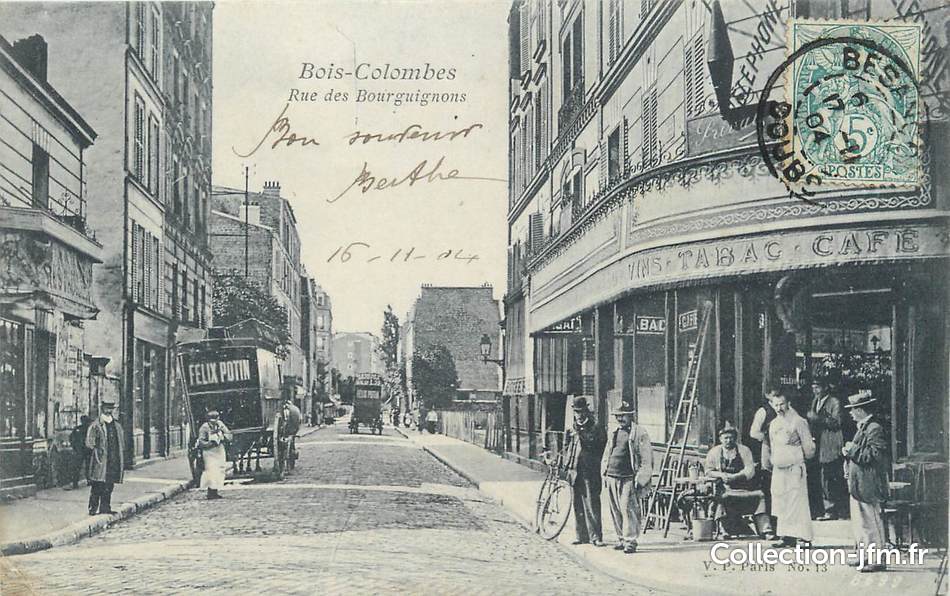 Bois-Colombes
Rue des Bourguignons
Bon souvenir
Berthe
16-11-04
TÉLÉPHONE
BESANÇON
DOUBS
5c
POSTES
VINS-TABAC-CAFÉ
TABAC
CAFÉ
FELIX POTIN
V. P. Paris No. 13
Collection-jfm.fr